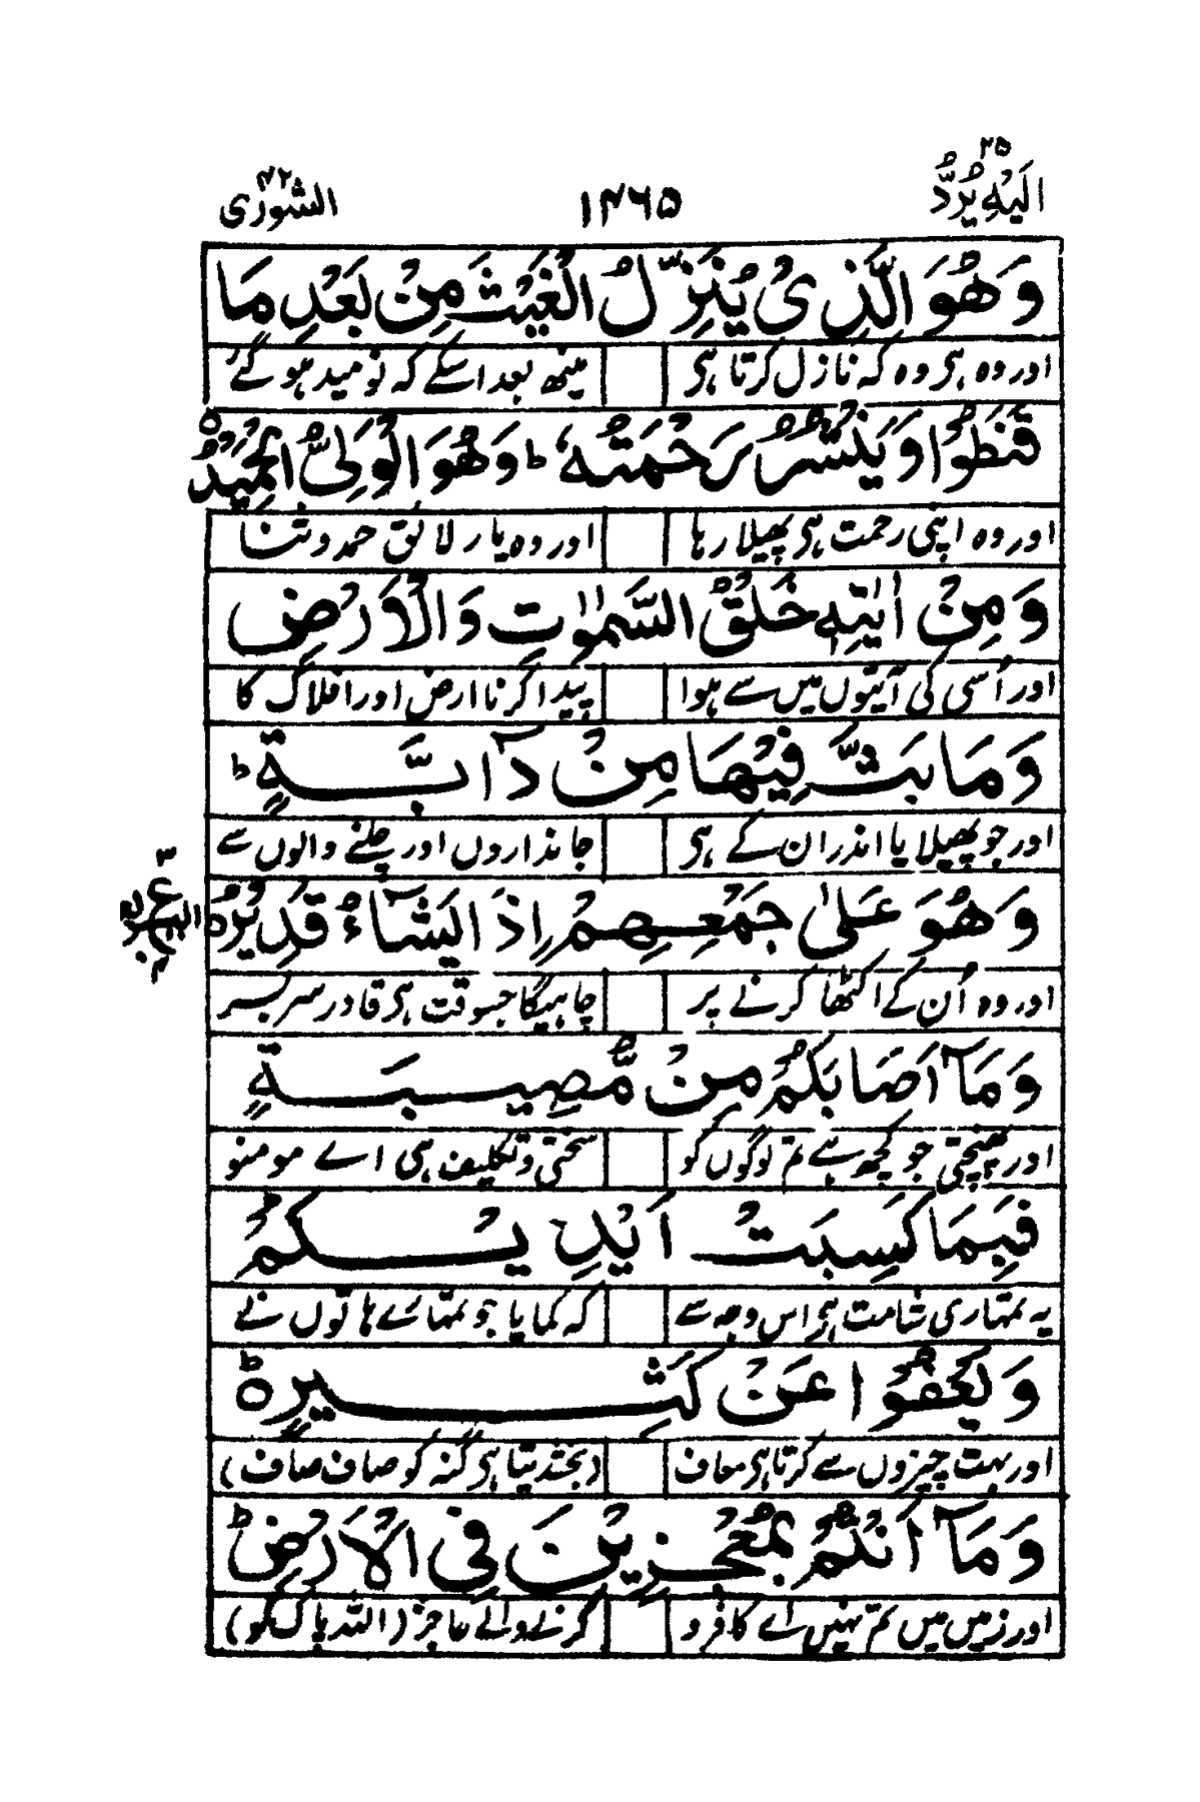 ۲۵
الیہ یردّ ۱۴۶۵ الشورٰی ۴۲
وَهُوَ الَّذِیْ یُنَزِّلُ الْغَیْثَ مِنْۢ بَعْدِ مَا
اور وہ ہی وہ کہ نازل کرتا ہی مینھ بعد اسکے کہ نومید ہو گئے
قَنَطُوْا وَیَنْشُرُ رَحْمَتَهٗ ؕ وَهُوَ الْوَلِیُّ الْحَمِیْدُ۝
اور وہ اپنی رحمت ہی پھیلا رہا اور وہ یار لائق حمد و ثنا
وَمِنْ اٰیٰتِهٖ خَلْقُ السَّمٰوٰتِ وَالْاَرْضِ
اور اُسی کی آیتوں میں سے ہوا پیدا کرنا ارض اور افلاک کا
وَمَا بَثَّ فِیْهِمَا مِنْ دَآبَّةٍ ؕ
اور جو پھیلایا اندر ان کے ہی جانداروں اور چلنے والوں سے
وَهُوَ عَلٰی جَمْعِهِمْ اِذَا یَشَآءُ قَدِیْرٌ۝
اور وہ اُن کے اکٹھا کرنے پر چاہیگا جسوقت ہی قادر سر بسر
وَمَاۤ اَصَابَكُمْ مِّنْ مُّصِیْبَةٍ
اور پہنچتی جو کچھ ہے تم لوگوں کو سختی و تکلیف ہی اے مومنو
فَبِمَا كَسَبَتْ اَیْدِیْكُمْ
یہ تمہاری شامت ہی اس وجہ سے کہ کمایا جو تمہارے ہاتوں نے
وَیَعْفُوْا عَنْ كَثِیْرٍ۝ؕ
اور بہت چیزوں سے کرتا ہی معاف (بخشدیتا ہی گنہ کو صاف صاف)
وَمَاۤ اَنْتُمْ بِمُعْجِزِیْنَ فِی الْاَرْضِ ؕ
اور زمیں میں تم نہیں اے کافرو کرنے والے عاجز (اللہ پاک کو)